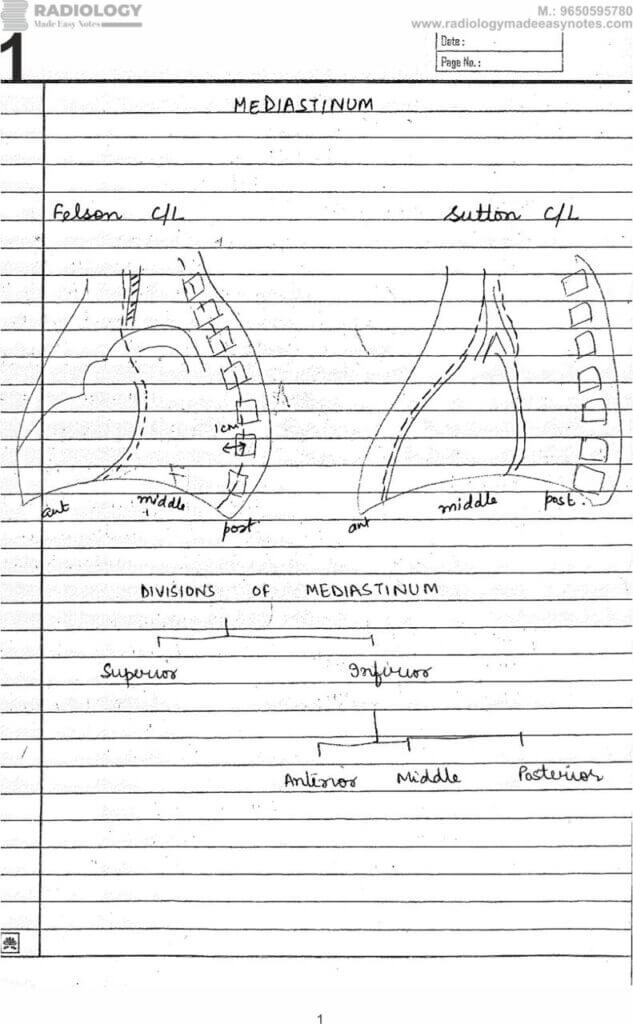 RADIOLOGY
Made Easy Notes
M.: 9650595780
www.radiologymadeeasynotes.com
1
Date :
Page No. :
MEDIASTINUM
Felson C/L
Sutton C/L
1cm
ant
middle
post.
ant
middle
post.
DIVISIONS OF MEDIASTINUM
Superior
Inferior
Anterior
Middle
Posterior
1